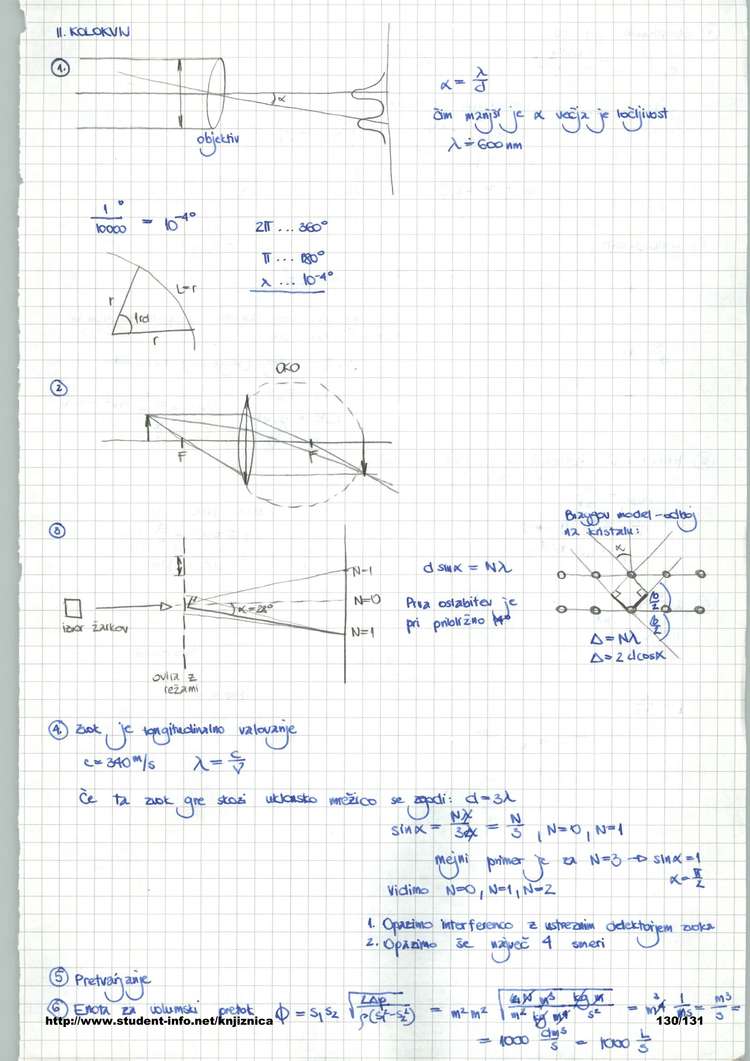 II. KOLOKVIJ
1.
α
objektiv
α = λ/d
čim manjši je α večja je ločljivost
λ ≐ 600 nm
1°/10000 = 10⁻⁴°
2π ... 360°
π ... 180°
λ ... 10⁻⁴°
r
L=r
1rd
r
2
OKO
F
F
3
izvor žarkov
ovira z
režami
α = 28°
N=-1
N=0
N=1
d sinα = Nλ
Prva oslabitev je
pri približno 14°
Braggov model - odboj
na kristalu:
α
Δ = Nλ
Δ = 2 d cosα
4. Zvok je longitudinalno valovanje
c = 340 m/s λ = c/ν
Če ta zvok gre skozi uklonsko mrežico se zgodi: d = 3λ
sinα = Nλ/3λ = N/3 , N=0, N=1
mejni primer je za N=3 → sinα = 1
α = π/2
Vidimo N=0, N=1, N=2
1. Opazimo interferenco z ustreznim detektorjem zvoka
2. Opazimo še največ 4 smeri
5 Pretvarjanje
6 Enota za volumski pretok Φ = S₁S₂ √(2Δp/ρ(S₁²-S₂²)) = m² m²
= m³ 1/s = m³/s =
= 1000 dm³/s = 1000 L/s
http://www.student-info.net/knjiznica
130/131